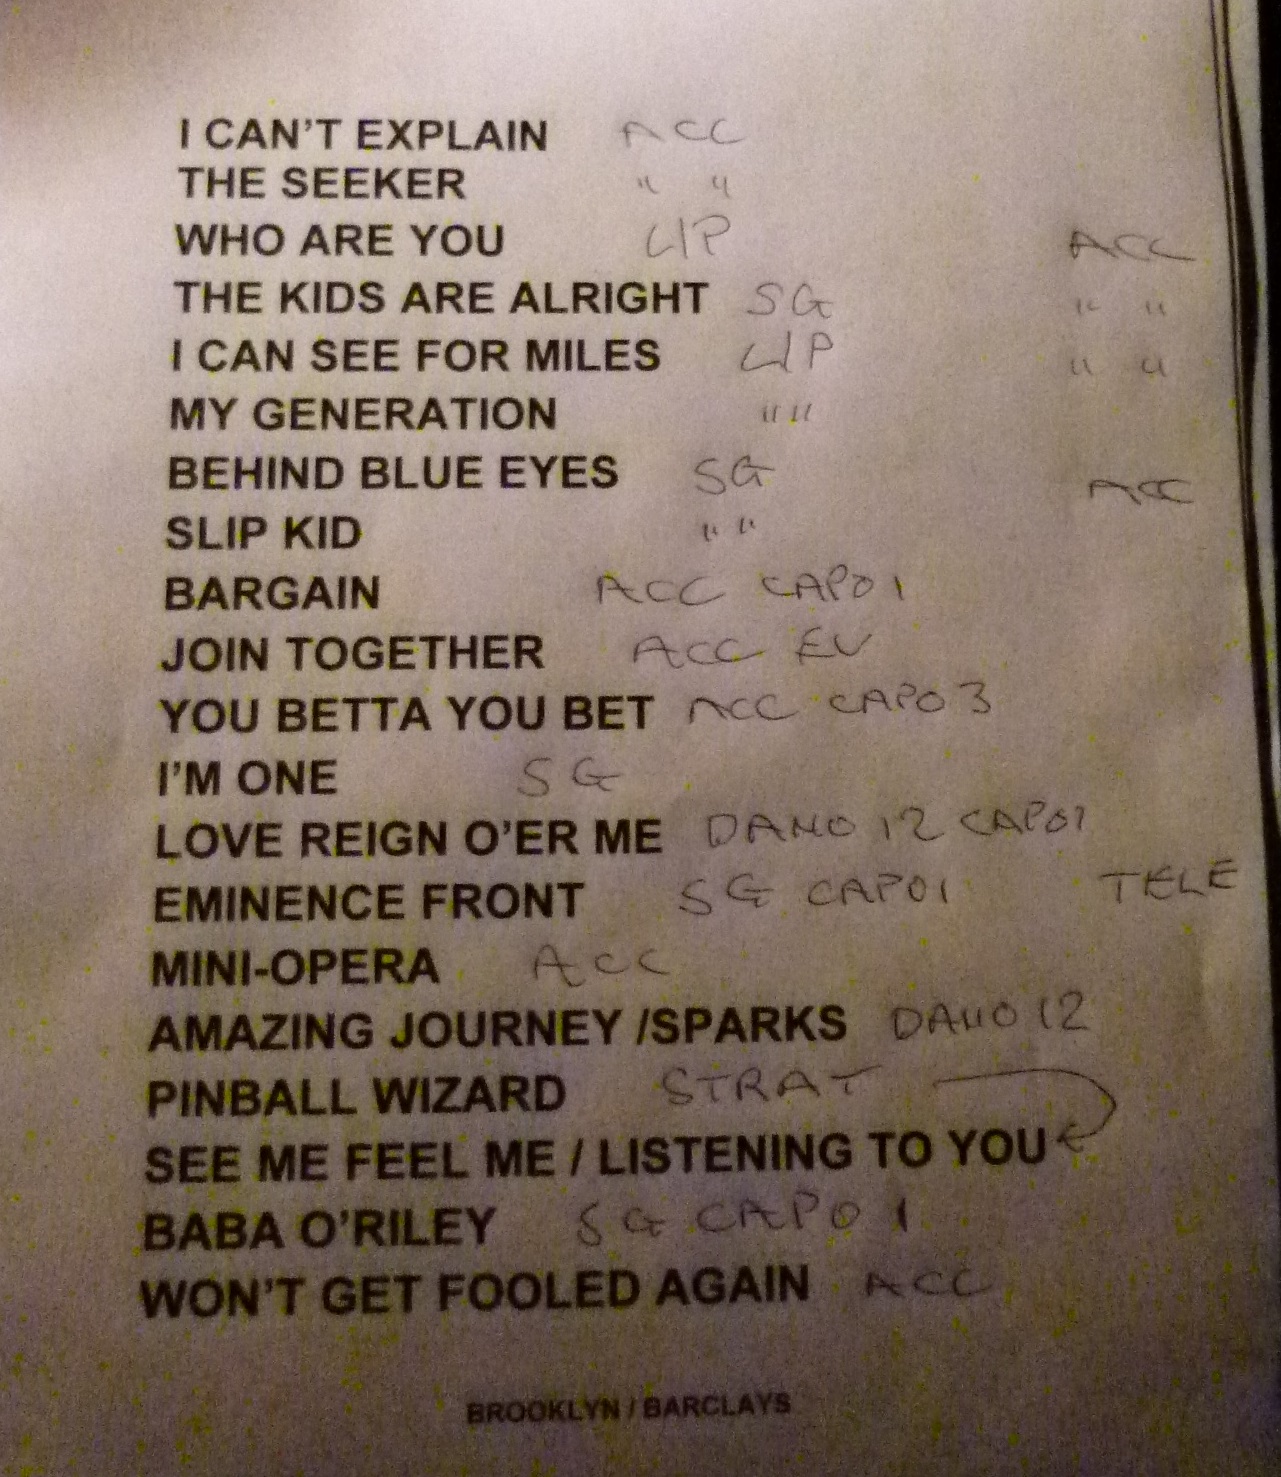 I CAN'T EXPLAIN ACC
THE SEEKER " "
WHO ARE YOU L/P ACC
THE KIDS ARE ALRIGHT SG " "
I CAN SEE FOR MILES L/P " "
MY GENERATION " "
BEHIND BLUE EYES SG ACC
SLIP KID " "
BARGAIN ACC CAPO 1
JOIN TOGETHER ACC
YOU BETTA YOU BET ACC CAPO 3
I'M ONE SG
LOVE REIGN O'ER ME DANO 12 CAPO
EMINENCE FRONT SG CAPO 1 TELE
MINI-OPERA ACC
AMAZING JOURNEY /SPARKS DANO 12
PINBALL WIZARD STRAT
SEE ME FEEL ME / LISTENING TO YOU
BABA O'RILEY SG CAPO 1
WON'T GET FOOLED AGAIN ACC
BROOKLYN / BARCLAYS